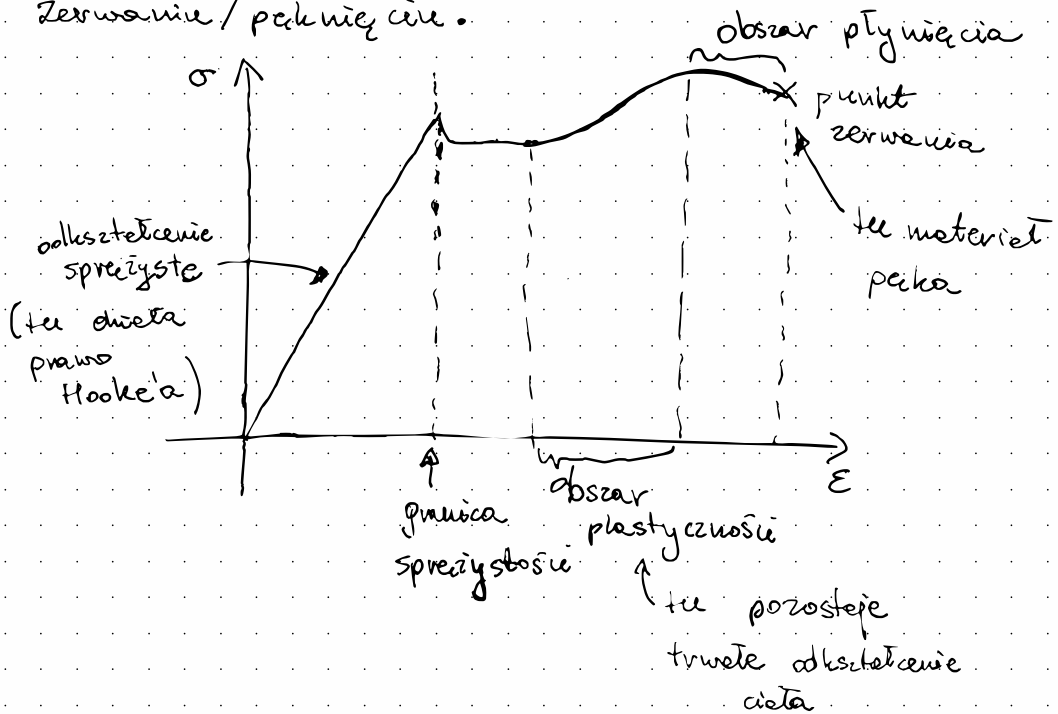 zerwanie / pęknięcie.
obszar płynięcia
σ
punkt
zerwania
tu materiał
pęka
odkształcenie
sprężyste
(tu działa
prawo
Hooke'a)
ε
granica
sprężystości
obszar
plastyczności
tu pozostaje
trwałe odkształcenie
ciała